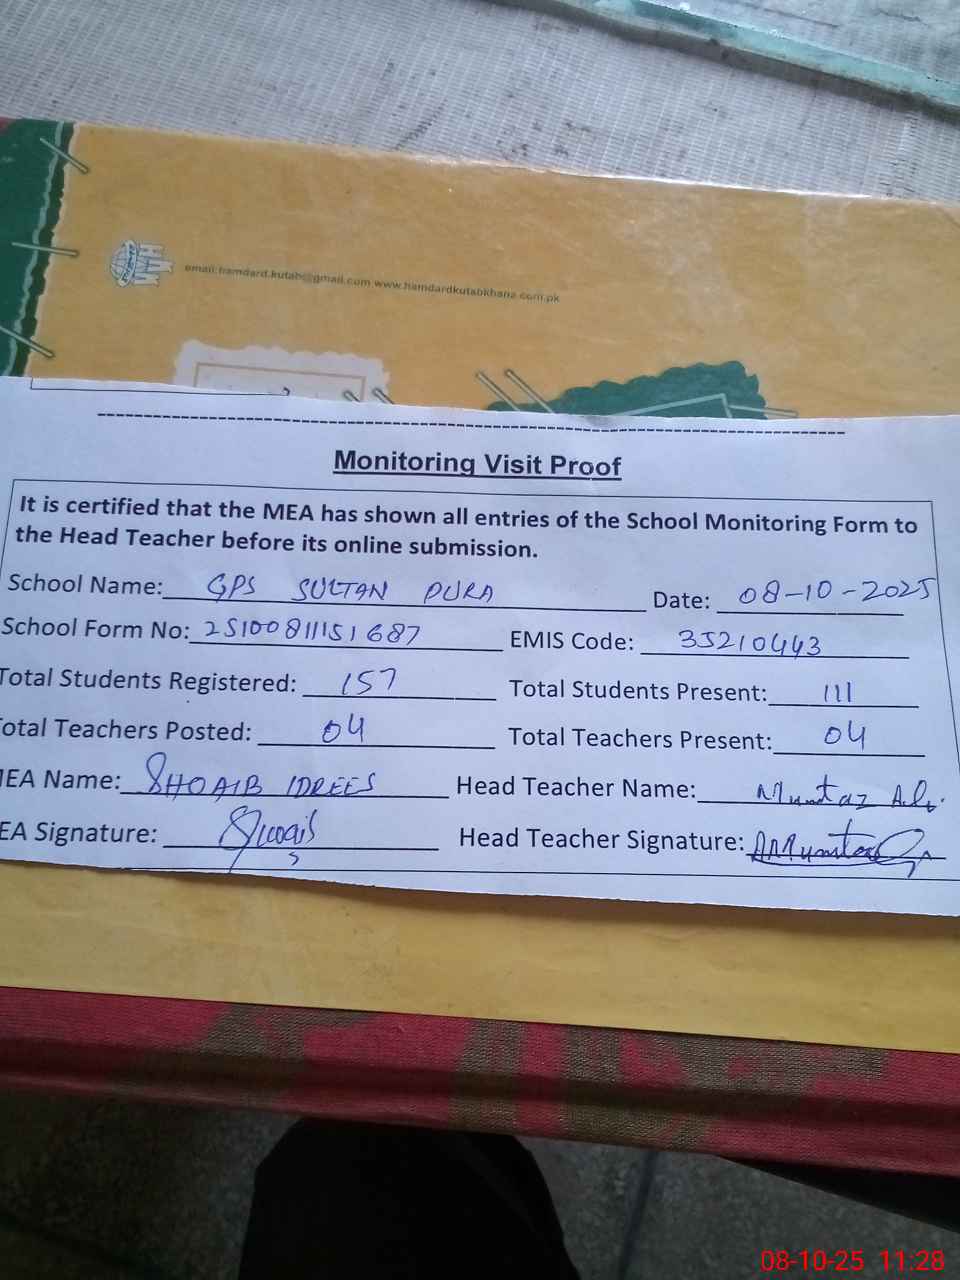 email:hamdard.kutab@gmail.com www.hamdardkutabkhana.com.pk
Monitoring Visit Proof
It is certified that the MEA has shown all entries of the School Monitoring Form to
the Head Teacher before its online submission.
School Name: GPS SULTAN PURA Date: 08-10-2025
School Form No: 251008111151687 EMIS Code: 35210443
Total Students Registered: 157 Total Students Present: 111
otal Teachers Posted: 04 Total Teachers Present: 04
MEA Name: SHOAIB IDREES Head Teacher Name: Mumtaz Ali
EA Signature: Shoaib Head Teacher Signature: Mumtaz
08-10-25 11:28